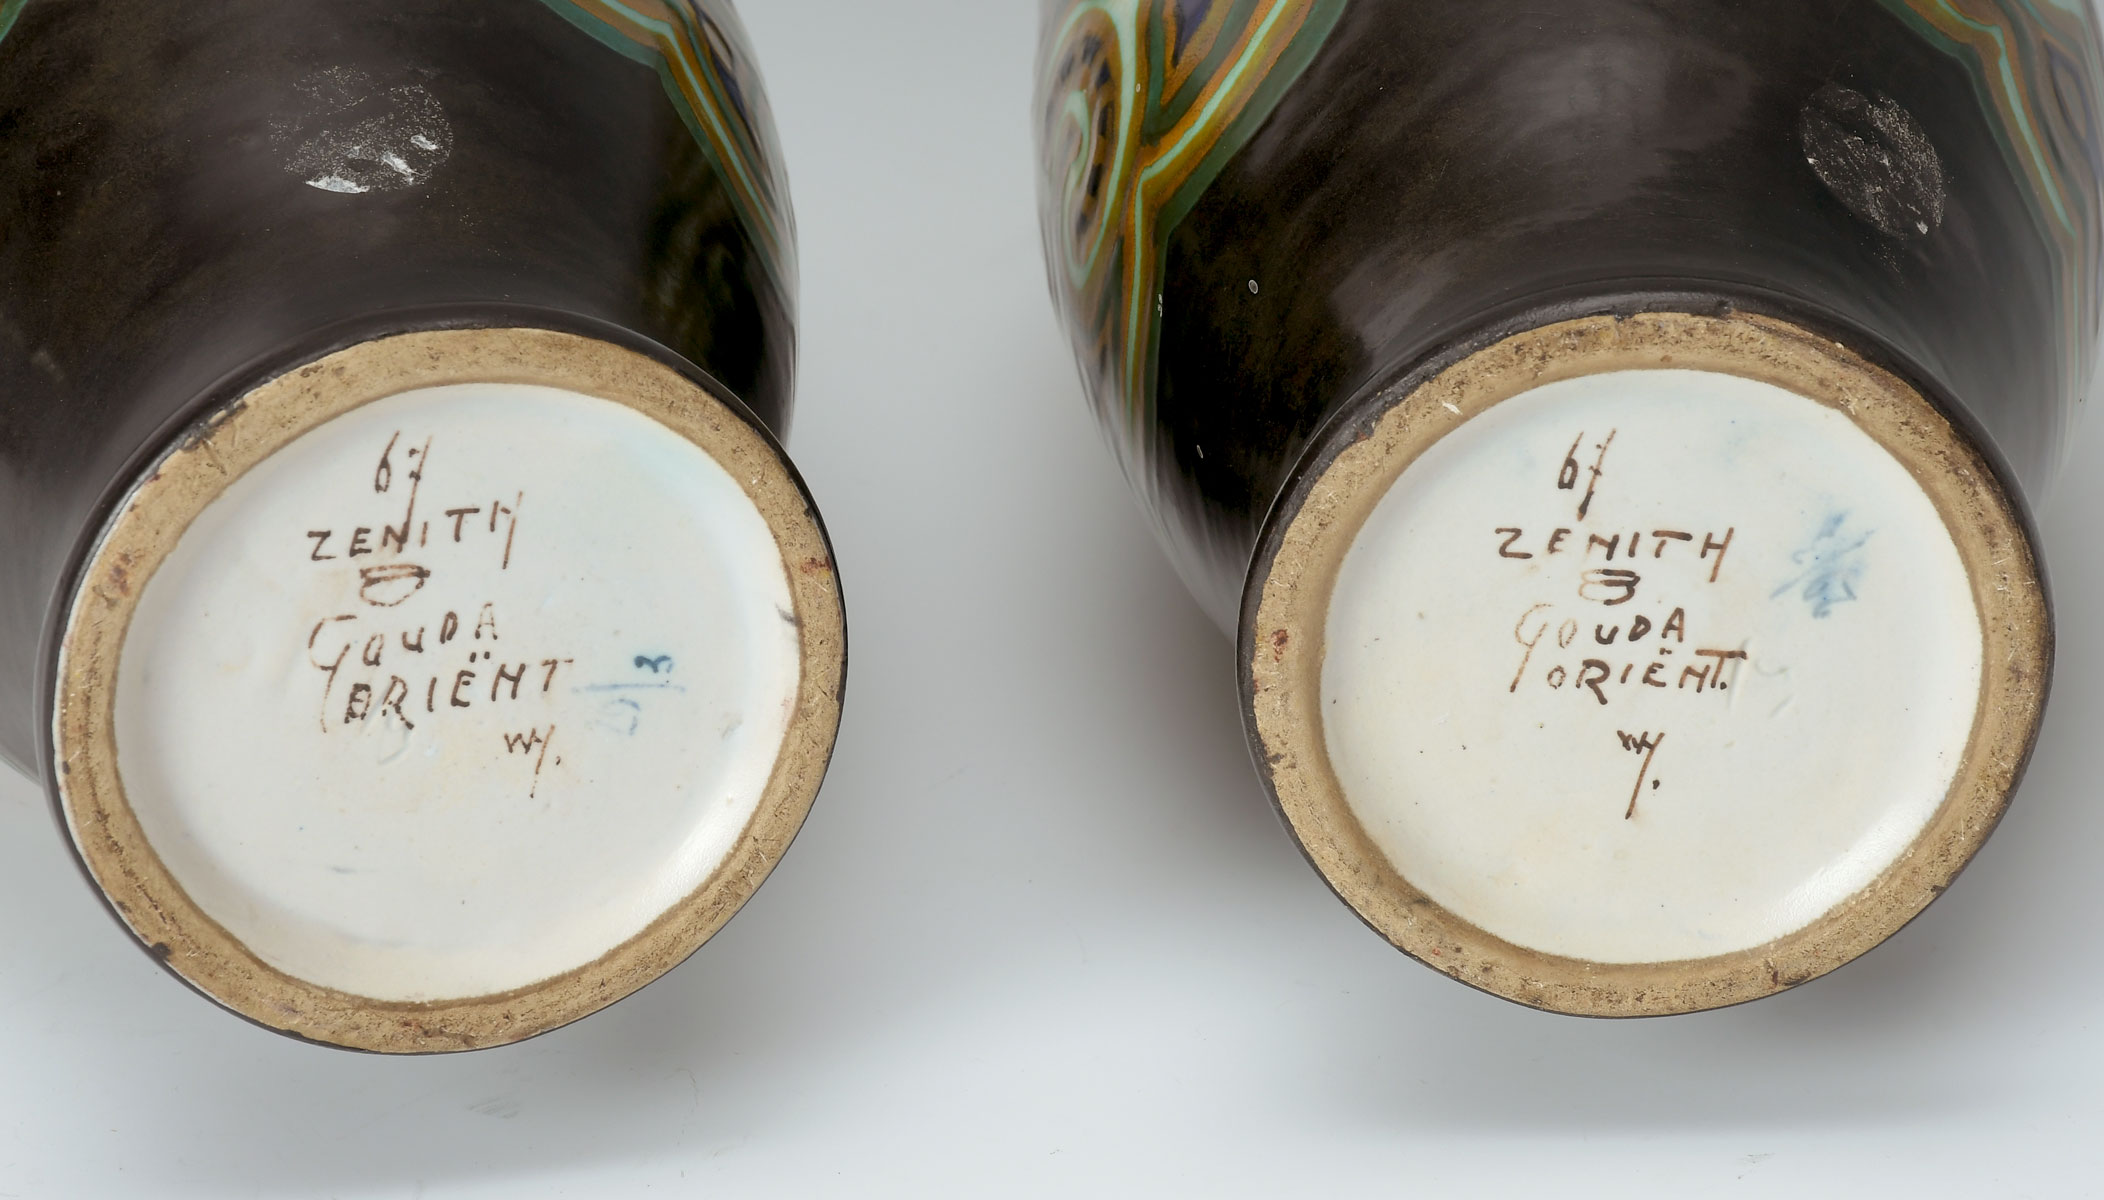 67
ZENITH
GOUDA
ORIËNT
WY.
67
ZENITH
GOUDA
ORIËNT.
WY.